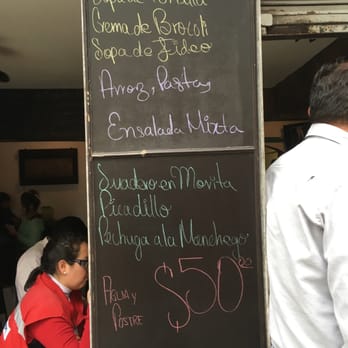 Sopa de Tortilla
Crema de Brocoli
Sopa de Fideo
Arroz, Pasta,
Ensalada Mixta
Suadero en Morita
Picadillo
Pechuga a la Manchego
Agua y
Postre
$50.00